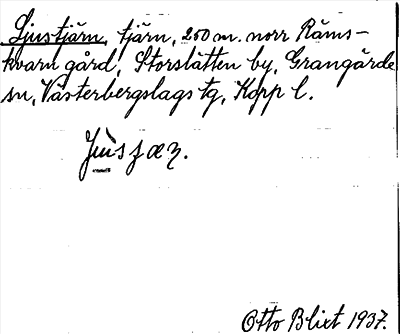 Ljustjärn, tjärn, 250 m. norr Räms-
kvarn gård, Storslätten by, Grangärde
sn, Västerbergslags tg, Kopp l.
Otto Blixt 1937.